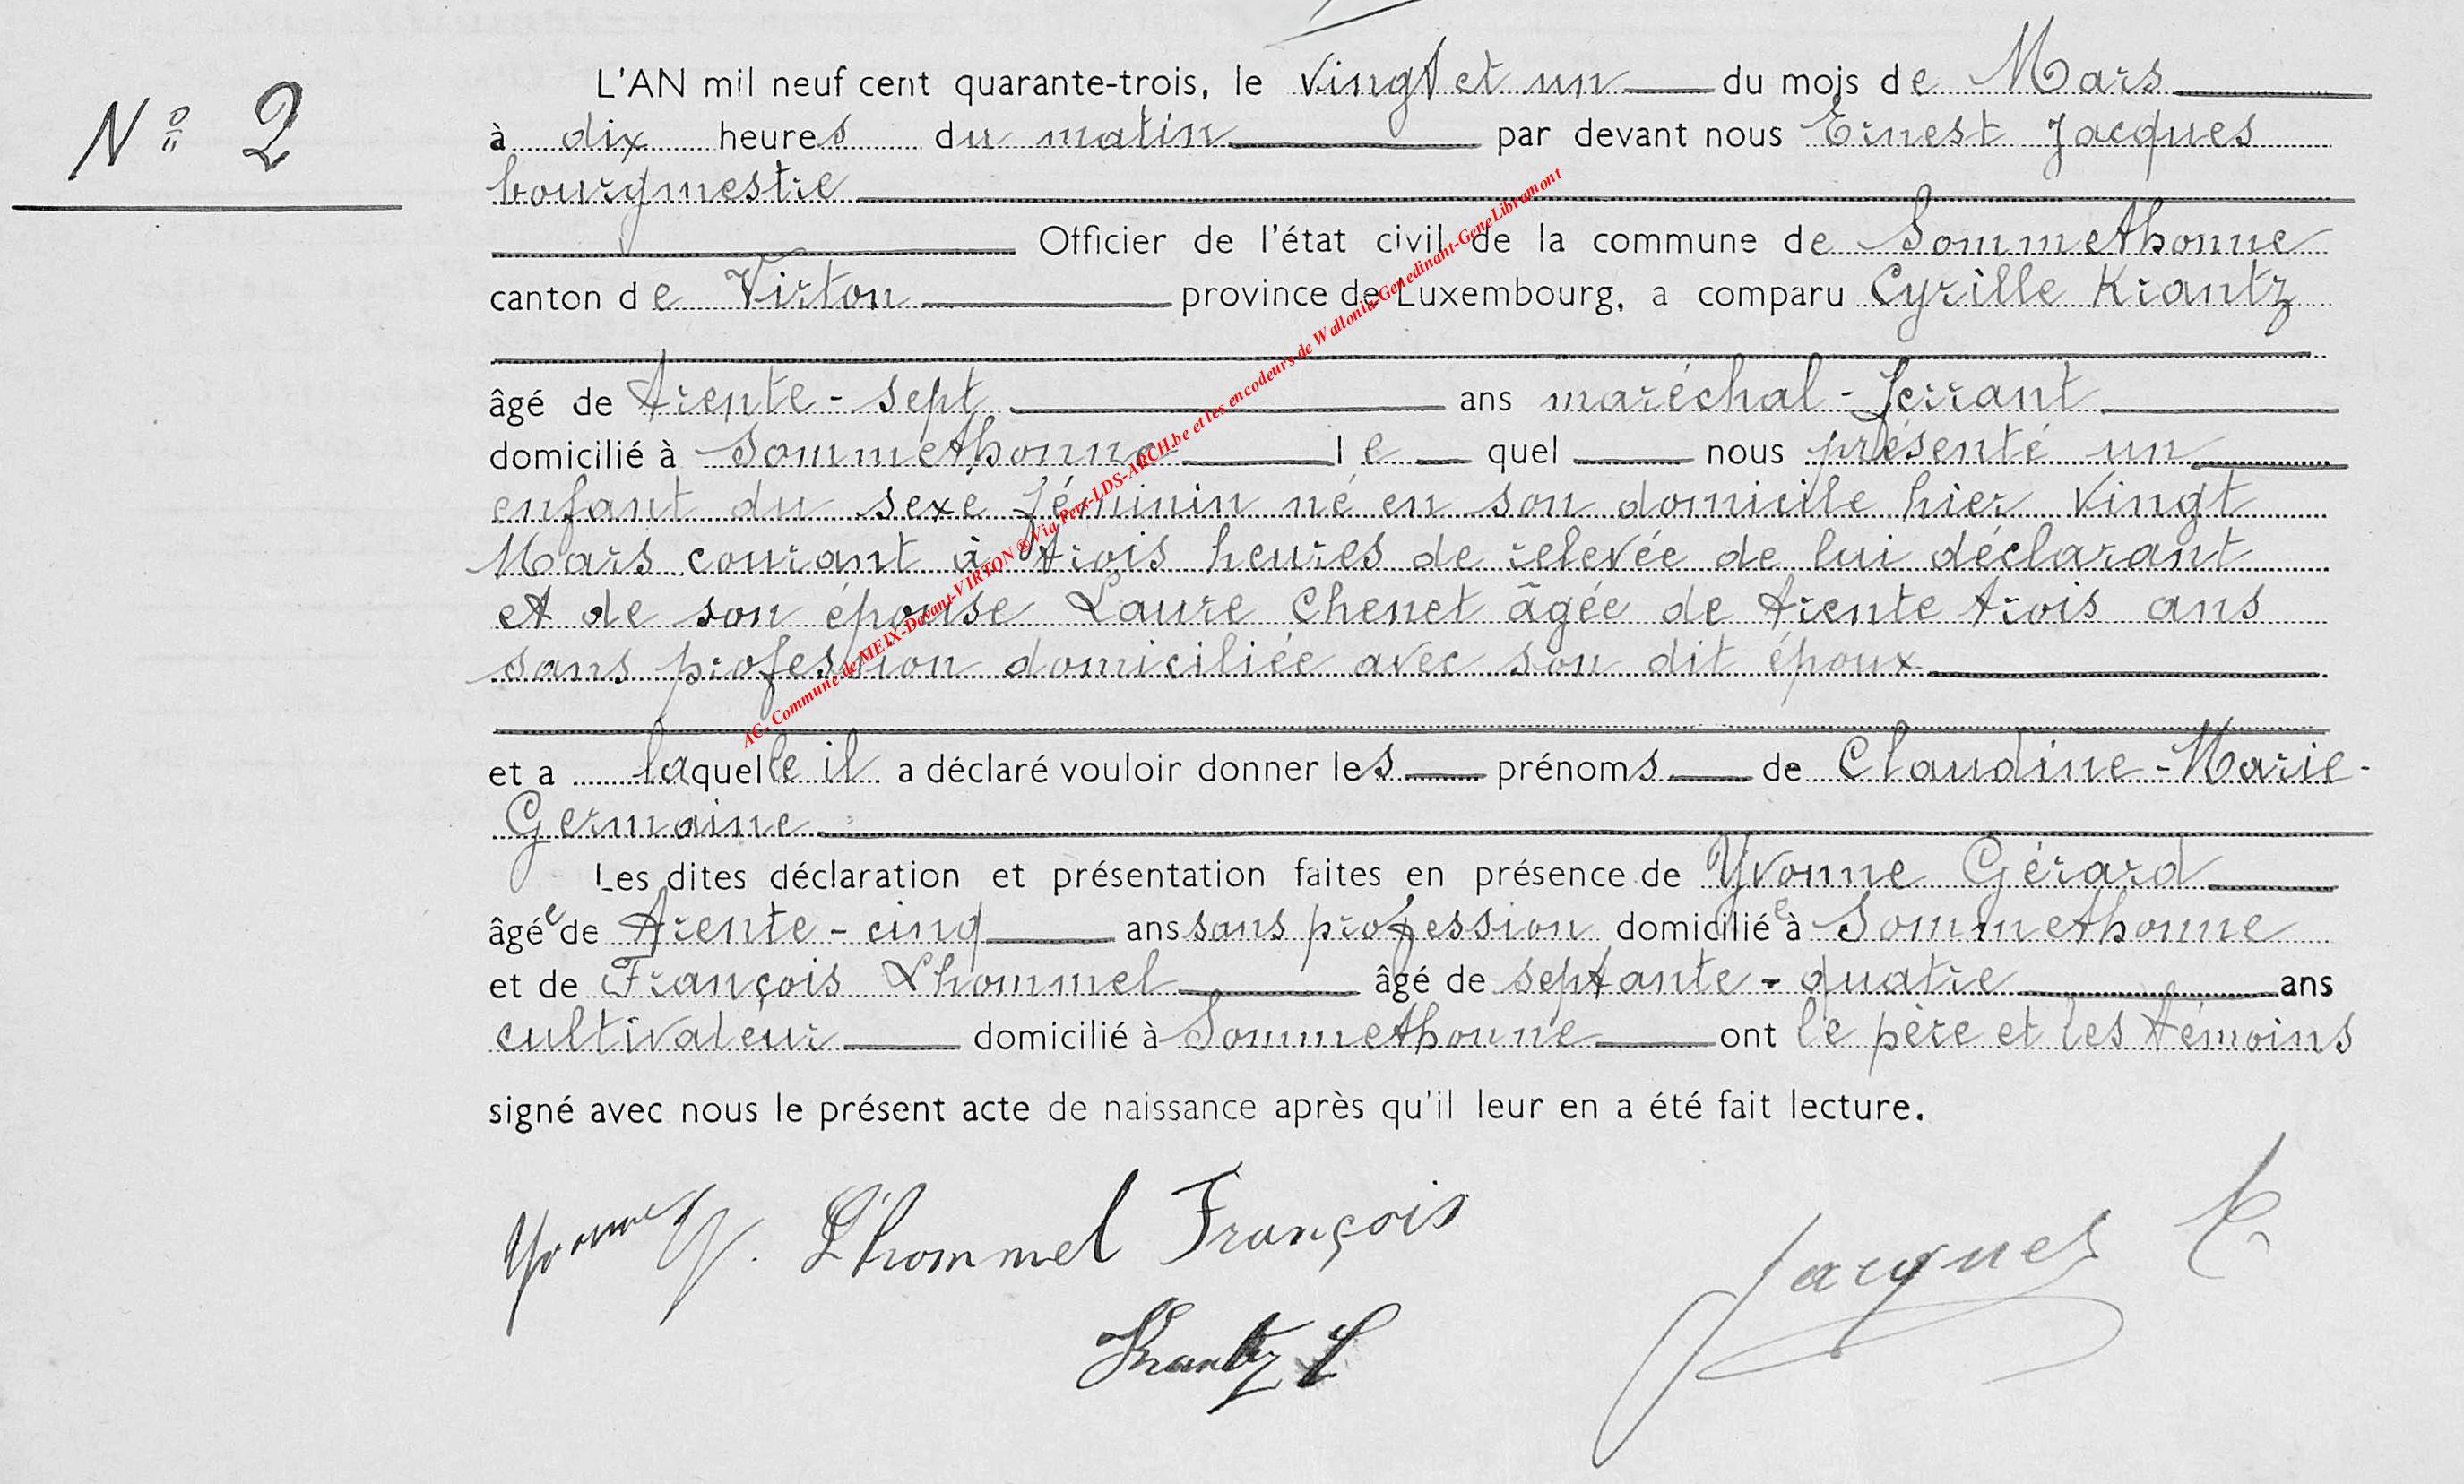 N° 2
L'AN mil neuf cent quarante-trois, le vingt et un du mois de Mars
à dix heures du matin par devant nous Ernest Jacques
bourgmestre
Officier de l'état civil de la commune de Sommethonne
canton de Virton province de Luxembourg, a comparu Cyrille Krantz
âgé de trente-sept ans maréchal-ferrant
domicilié à Sommethonne lequel nous présenté un
enfant du sexe féminin né en son domicile hier vingt
Mars courant à trois heures de relevée de lui déclarant
et de son épouse Laure Chenet âgée de trente trois ans
sans profession domiciliée avec son dit époux
et a laquelle il a déclaré vouloir donner les prénoms de Claudine-Marie-
Germaine
Les dites déclaration et présentation faites en présence de Yvonne Gérard
âgée de trente-cinq ans sans profession domiciliée à Sommethonne
et de François Lhommel âgé de septante-quatre ans
cultivateur domicilié à Sommethonne ont le père et les témoins
signé avec nous le présent acte de naissance après qu'il leur en a été fait lecture.
Yvonne G. L'hommel François
Jacques E.
Krantz C
AC- Commune de MEIX-Devant-VIRTON ®Via Pers-LDS-ARCH.be et les encodeurs de Wallonia-Genedinant-GeneLibramont